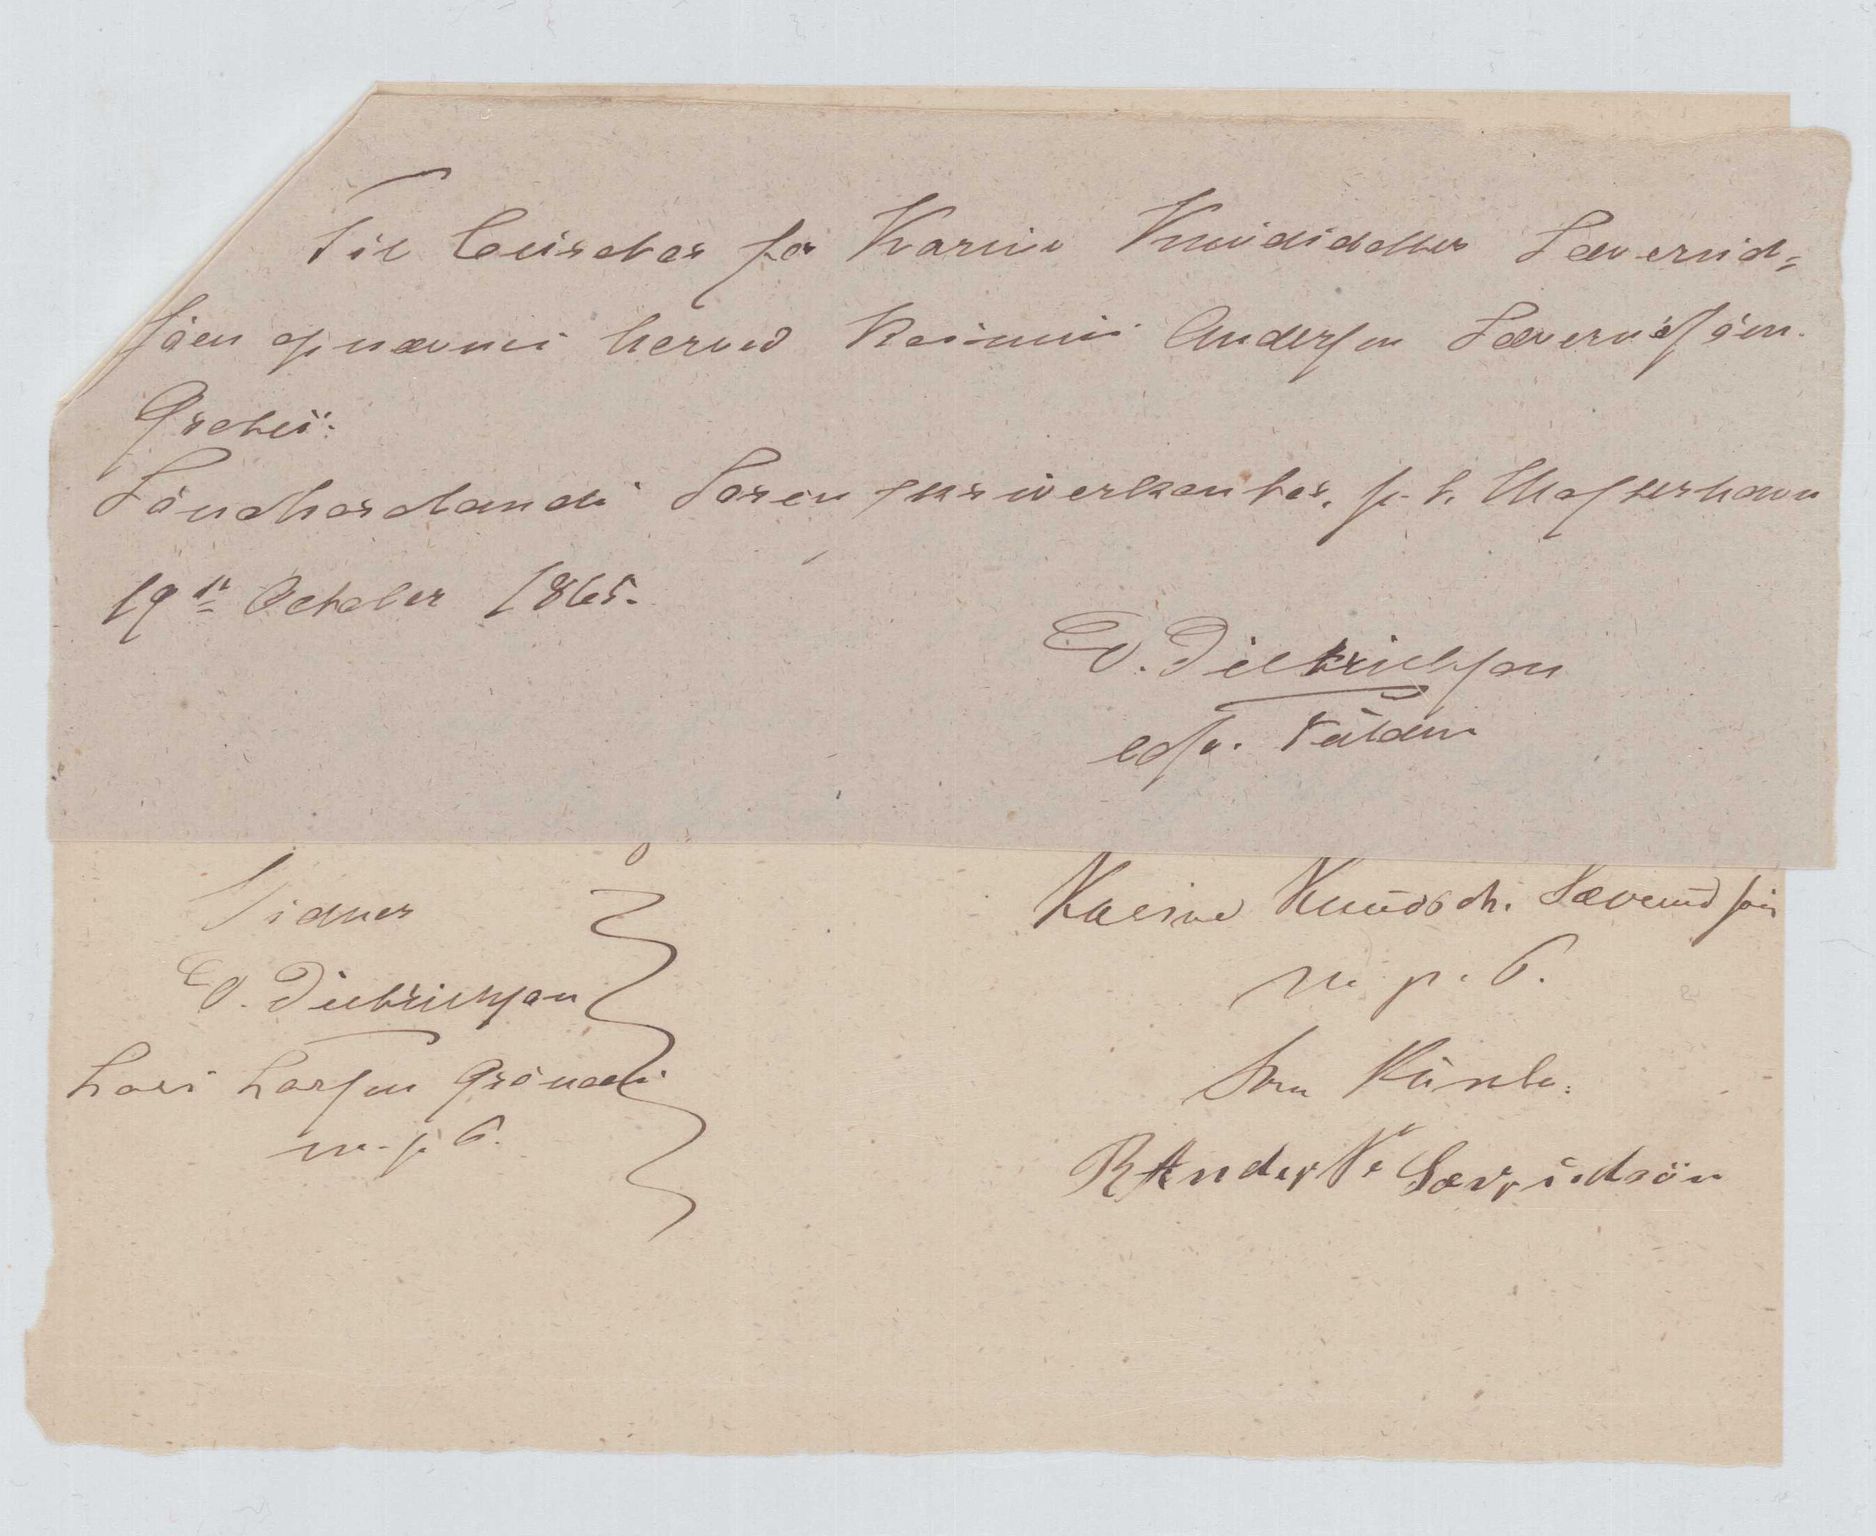 Til Curator for Karine Knudsdatter Sæverud-
söen opnævnes herved Rasmus Andersen Sæverudsöen.
Gratis.
Söndhordlands Sorenskriverkontor, p. t. Mosterhavn
19de October 1865.
E. Dietrichson
cst. Fuldm.
Vidner
E. Dietrichson
Lars Larsen
m. p. P.
Karine Knudsdtr. Sæverudsöen
m. p. P.
Som Kurator:
R Anders Sæverudsöen